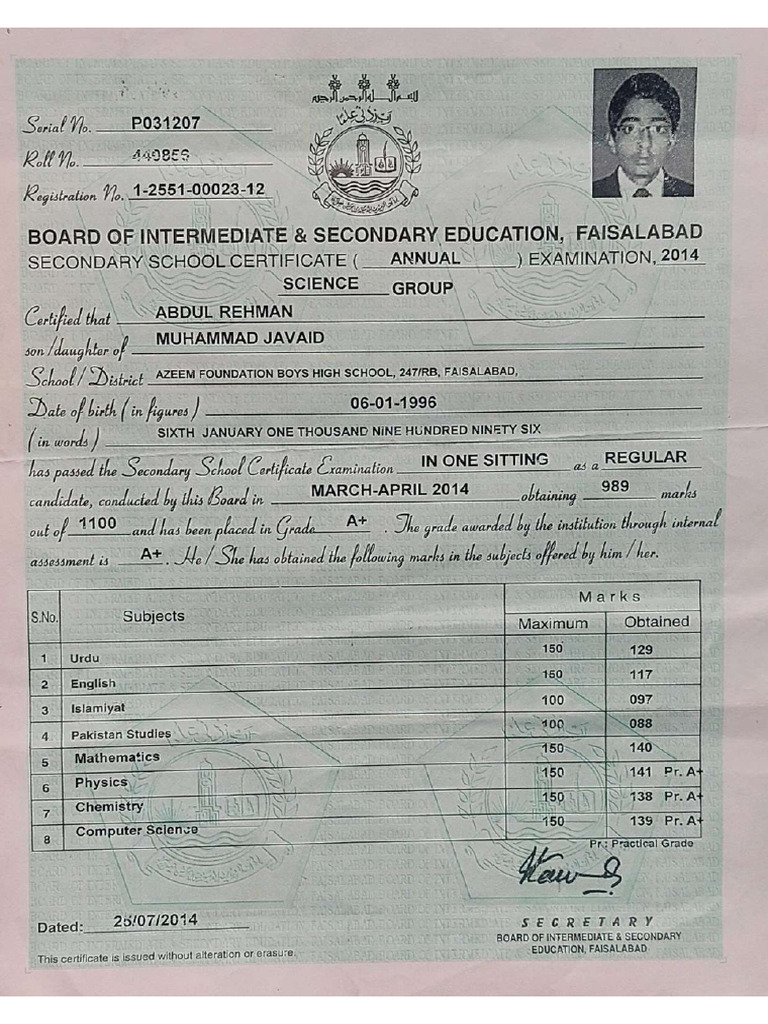 بسم الله الرحمن الرحيم
رب زدنی علما
Serial No. P031207
Roll No. 440856
Registration No. 1-2551-00023-12
BOARD OF INTERMEDIATE & SECONDARY EDUCATION, FAISALABAD
SECONDARY SCHOOL CERTIFICATE ( ANNUAL ) EXAMINATION, 2014
SCIENCE GROUP
Certified that ABDUL REHMAN
son/daughter of MUHAMMAD JAVAID
School / District AZEEM FOUNDATION BOYS HIGH SCHOOL, 247/RB, FAISALABAD,
Date of birth ( in figures ) 06-01-1996
( in words ) SIXTH JANUARY ONE THOUSAND NINE HUNDRED NINETY SIX
has passed the Secondary School Certificate Examination IN ONE SITTING as a REGULAR
candidate, conducted by this Board in MARCH-APRIL 2014 obtaining 989 marks
out of 1100 and has been placed in Grade A+ . The grade awarded by the institution through internal
assessment is A+ . He / She has obtained the following marks in the subjects offered by him / her.
S.No. Subjects Marks
Maximum Obtained
1 Urdu 150 129
2 English 150 117
3 Islamiyat 100 097
4 Pakistan Studies 100 088
5 Mathematics 150 140
6 Physics 150 141 Pr. A+
7 Chemistry 150 138 Pr. A+
8 Computer Science 150 139 Pr. A+
Pr.: Practical Grade
Dated: 25/07/2014
SECRETARY
BOARD OF INTERMEDIATE & SECONDARY
EDUCATION, FAISALABAD
This certificate is issued without alteration or erasure.